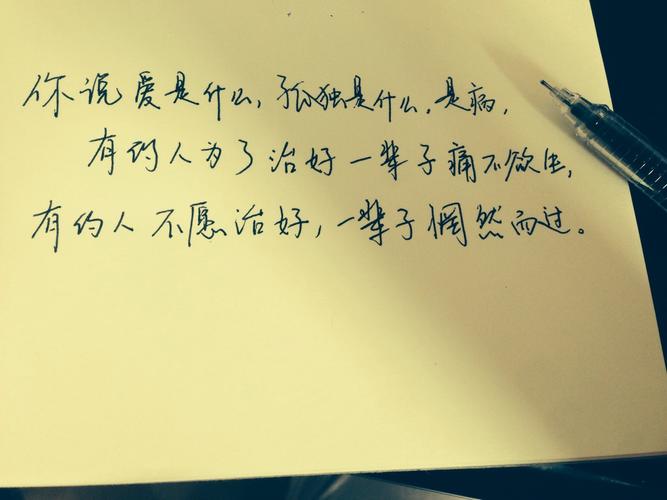 你说爱是什么,孤独是什么,是病,
有的人为了治好一辈子痛不欲生,
有的人不愿治好,一辈子惘然而过。